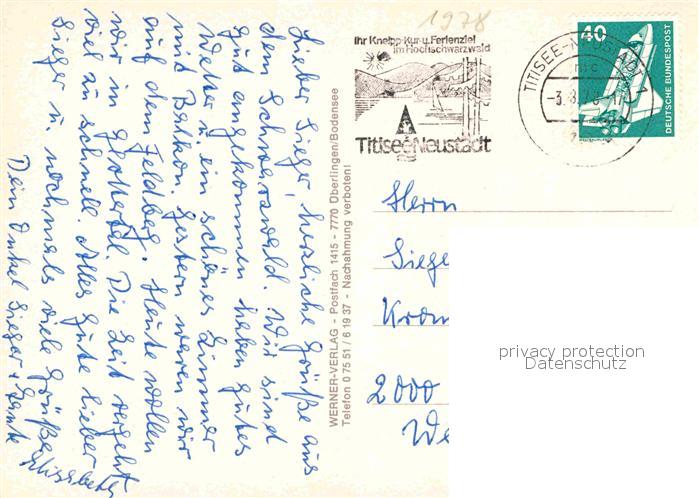 1978
Ihr Kneipp-Kur-u. Ferienziel
im Hochschwarzwald
Titisee-Neustadt
TITISEE-NEUSTADT
-3.8.78-17
40
DEUTSCHE BUNDESPOST
Lieber Sieger, herzliche Grüße aus
dem Schwarzwald. Wir sind
gut angekommen haben gutes
Wetter u. ein schönes Zimmer
mit Balkon. Gestern waren wir
auf dem Feldberg. Heute wollen
wir in Glottertal. Die Zeit vergeht
viel zu schnell. Alles Gute lieber
Sieger u. nochmals viele Grüße
Dein Onkel Sieger + Tante Elissabeth
WERNER-VERLAG - Postfach 1415 - 7770 Überlingen/Bodensee
Telefon 0 75 51 / 6 19 37 - Nachahmung verboten!
Herrn
Siege
Kron
2000
We
privacy protection
Datenschutz